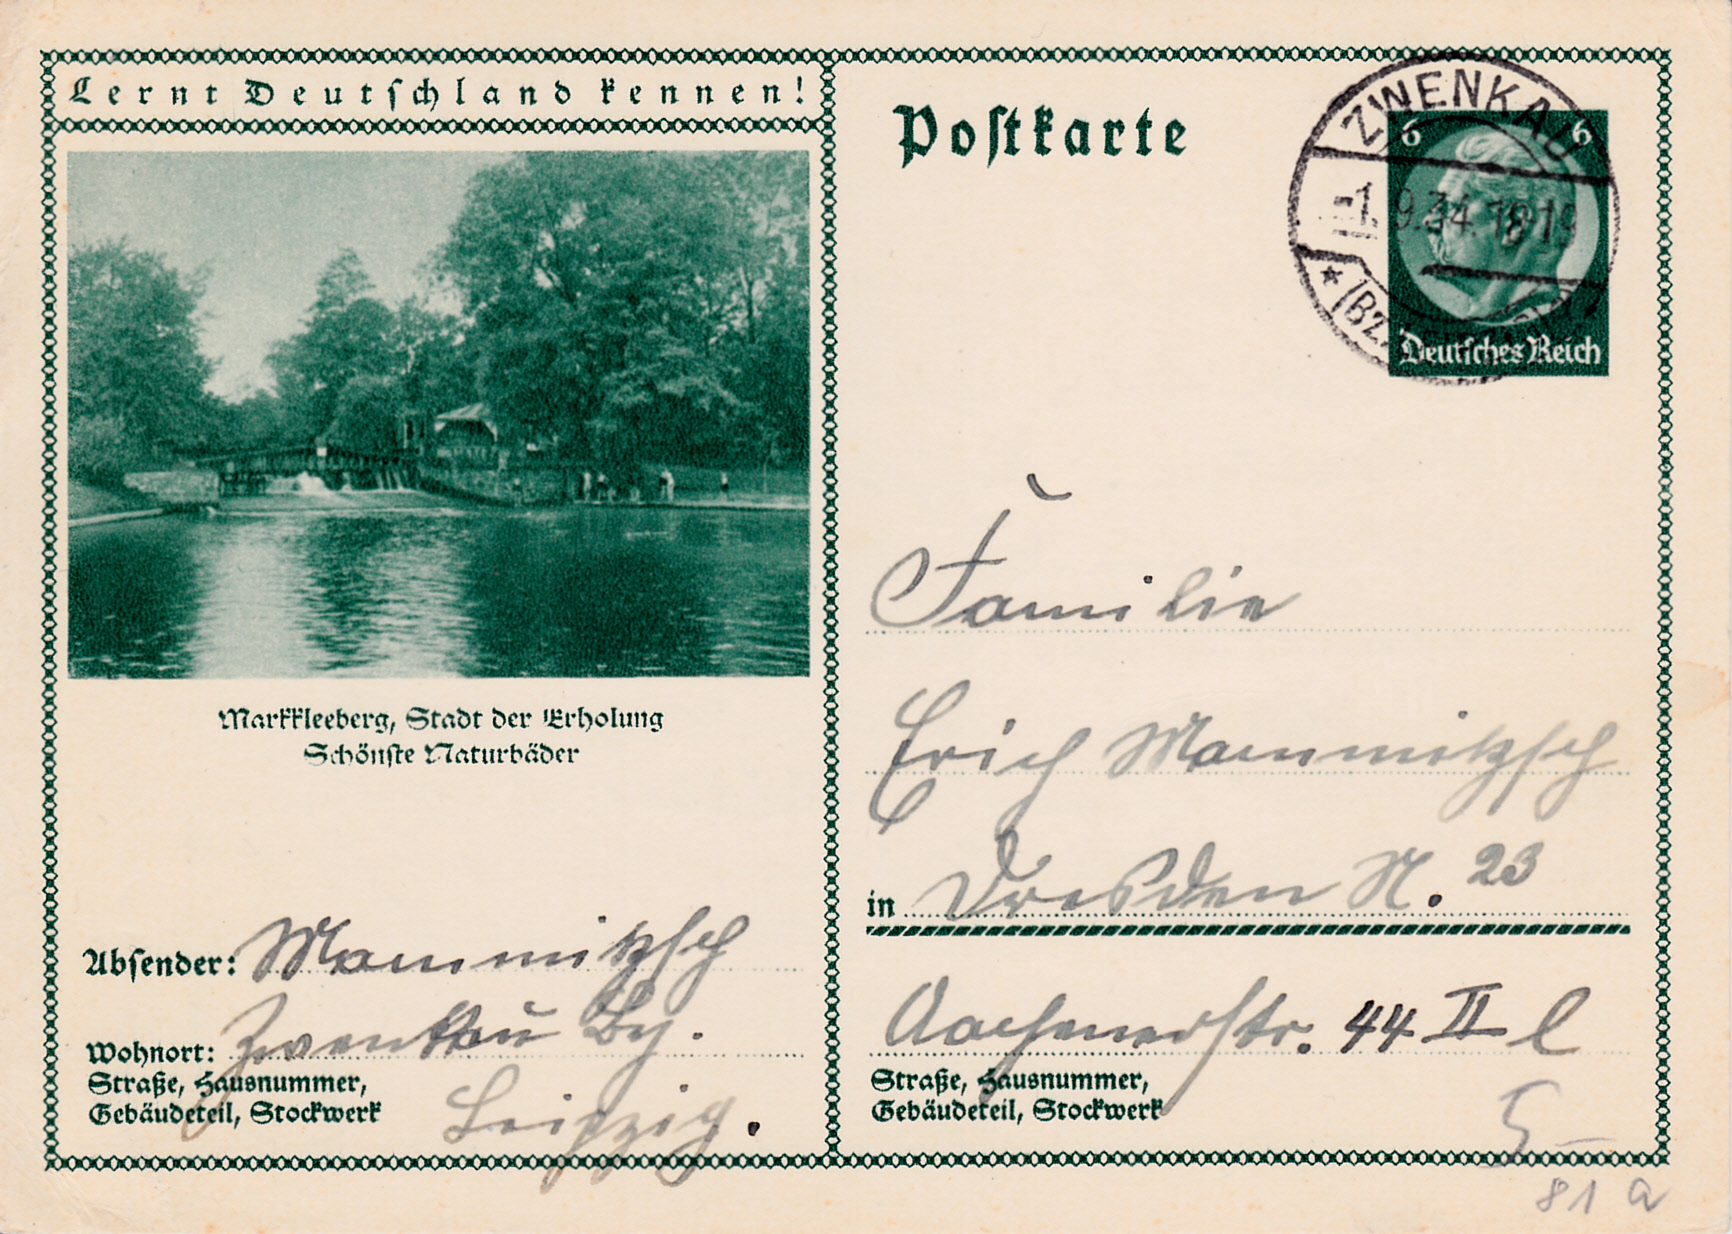 Lernt Deutschland kennen!
Markkleeberg, Stadt der Erholung
Schönste Naturbäder
Absender: Mammitzsch
Wohnort: Zwenkau Bz.
Straße, Hausnummer,
Gebäudeteil, Stockwerk
Leipzig.
Postkarte
ZWENKAU
-1.9.34.18-19
* (BZ.
6 6
Deutsches Reich
Familie
Erich Mammitzsch
in Dresden N. 23
Aachenerstr. 44 II l
Straße, Hausnummer,
Gebäudeteil, Stockwerk
5-
81 a